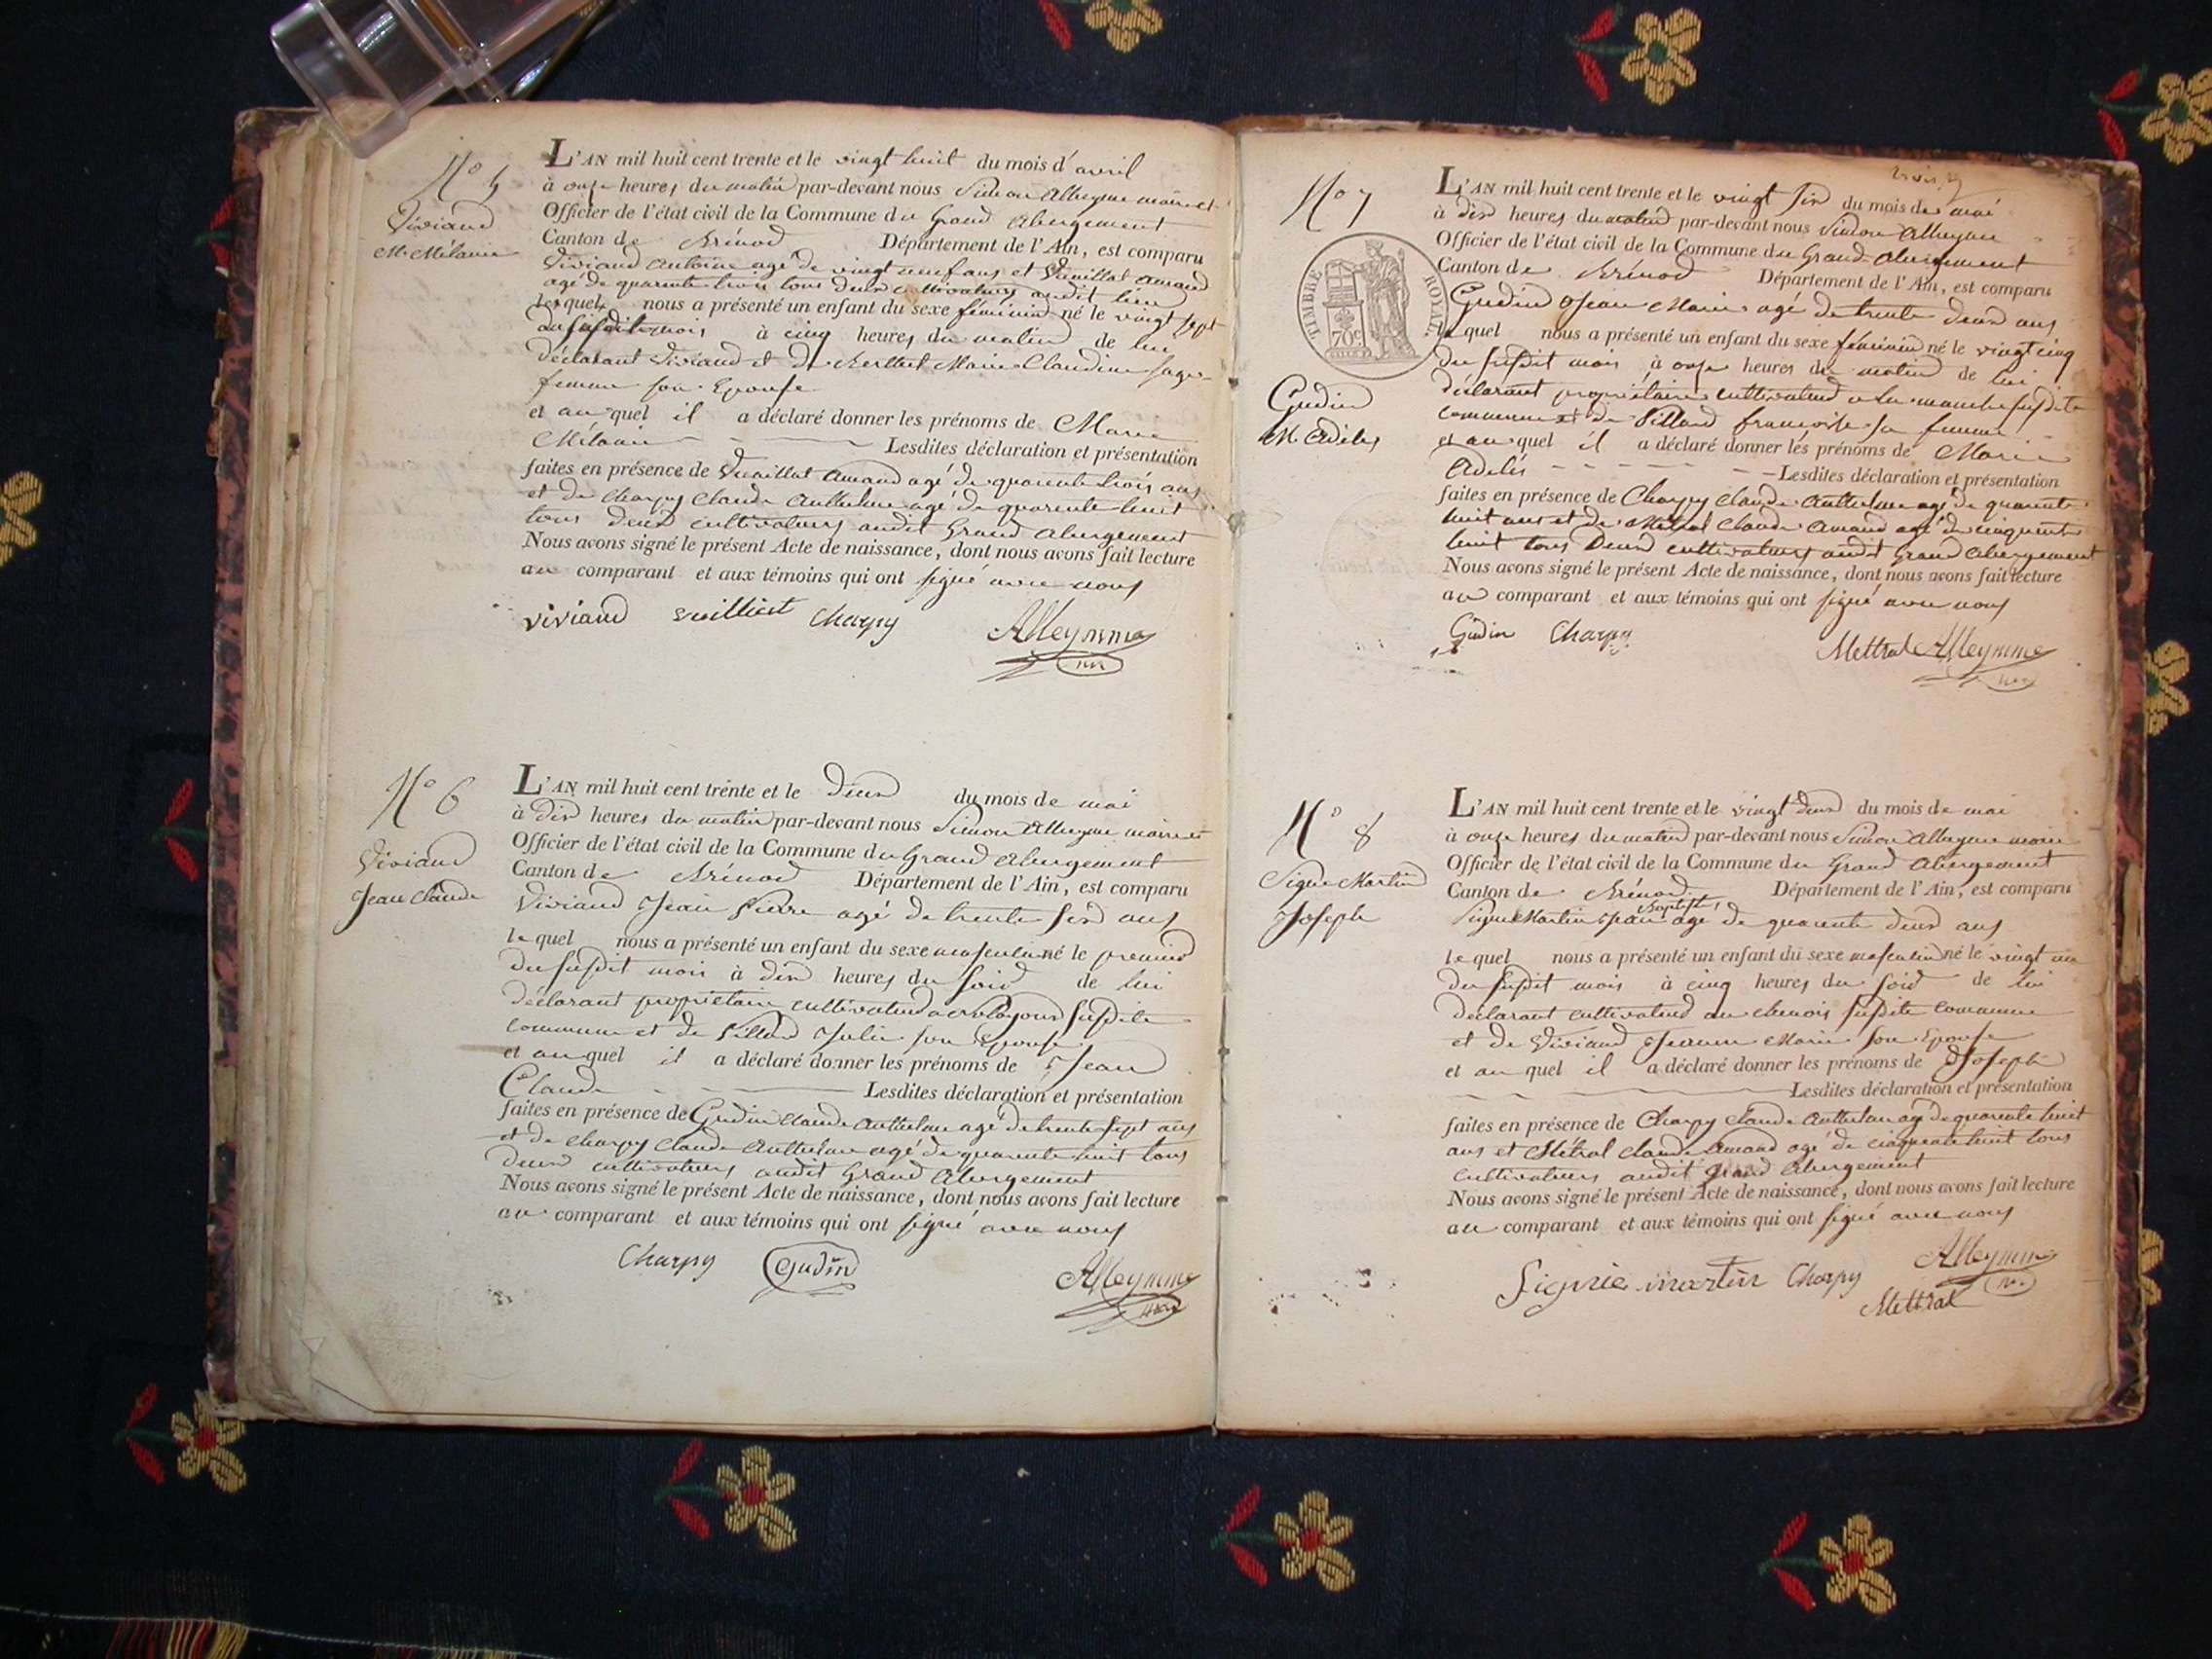 No 5
Viviand
M. Mélanie
L'AN mil huit cent trente et le vingt huit du mois d'avril
à onze heures du matin par-devant nous Simon Alleyme maire et
Officier de l'état civil de la Commune du Grand Abergement
Canton de Brénod Département de l'Ain, est comparu
Viviand Antoine agé de vingt neuf ans et Vuillat Amand
agé de quarante trois tous deux cultivateurs audit lieu
lesquels nous a présenté un enfant du sexe féminin né le vingt sept
du susdit mois à cinq heures du matin de lui
déclarant Viviand et de Marie Claudine sage
femme son Epouse
et au quel il a déclaré donner les prénoms de Marie
Mélanie Lesdites déclaration et présentation
faites en présence de Vuaillat Amand agé de quarante trois ans
et de Charpy Claude Anthelme agé de quarante huit
tous deux cultivateurs audit Grand Abergement
Nous avons signé le présent Acte de naissance, dont nous avons fait lecture
au comparant et aux témoins qui ont signé avec nous
viviand vuilliat Charpy Alleymme
No 6
Viviand
Jean Claude
L'AN mil huit cent trente et le deux du mois de mai
à dix heures du matin par-devant nous Simon Alleyme maire et
Officier de l'état civil de la Commune du Grand Abergement
Canton de Brénod Département de l'Ain, est comparu
Viviand Jean Pierre agé de trente six ans
lequel nous a présenté un enfant du sexe masculin né le premier
du susdit mois à dix heures du soir de lui
déclarant propriétaire cultivateur susdite
commune et de Villard Julie son Epouse
et au quel il a déclaré donner les prénoms de Jean
Claude Lesdites déclaration et présentation
faites en présence de Gudin Claude Anthelme agé de trente sept ans
et de Charpy Claude Anthelme agé de quarante huit tous
deux cultivateurs audit Grand Abergement
Nous avons signé le présent Acte de naissance, dont nous avons fait lecture
au comparant et aux témoins qui ont signé avec nous
Charpy Gudin Alleymme
No 7
TIMBRE ROYAL
70c
Gudin
M. Adeles
L'AN mil huit cent trente et le vingt six du mois de mai
à dix heures du matin par-devant nous Simon Alleyme
Officier de l'état civil de la Commune du Grand Abergement
Canton de Brénod Département de l'Ain, est comparu
Gudin Jean Marie agé de trente deux ans
lequel nous a présenté un enfant du sexe féminin né le vingt cinq
du susdit mois à onze heures du matin de lui
déclarant propriétaire cultivateur a la manche susdite
commune et de Villard françoise sa femme
et au quel il a déclaré donner les prénoms de Marie
Adelés Lesdites déclaration et présentation
faites en présence de Charpy Claude Anthelme agé de quarante
huit ans et de Métral Claude Amand agé de cinquante
huit tous Deux cultivateurs audit Grand Abergement
Nous avons signé le présent Acte de naissance, dont nous avons fait lecture
au comparant et aux témoins qui ont signé avec nous
Gudin Charpy Mettral Alleymme
No 8
Signe Martin
Joseph
L'AN mil huit cent trente et le vingt deux du mois de mai
à onze heures du matin par-devant nous Simon Alleyme maire
Officier de l'état civil de la Commune du Grand Abergement
Canton de Brénod Département de l'Ain, est comparu
Signe Martin Jean Baptiste agé de quarante deux ans
lequel nous a présenté un enfant du sexe masculin né le vingt un
du susdit mois à cinq heures du soir de lui
déclarant cultivateur au chenois susdite commune
et de Viviand Jeanne Marie son Epouse
et au quel il a déclaré donner les prénoms de Joseph
Lesdites déclaration et présentation
faites en présence de Charpy Claude Anthelme agé de quarante huit
ans et Métral Claude Amand agé de cinquante huit tous
cultivateurs audit Grand Abergement
Nous avons signé le présent Acte de naissance, dont nous avons fait lecture
au comparant et aux témoins qui ont signé avec nous
Signie martin Charpy Alleymme
Mettral